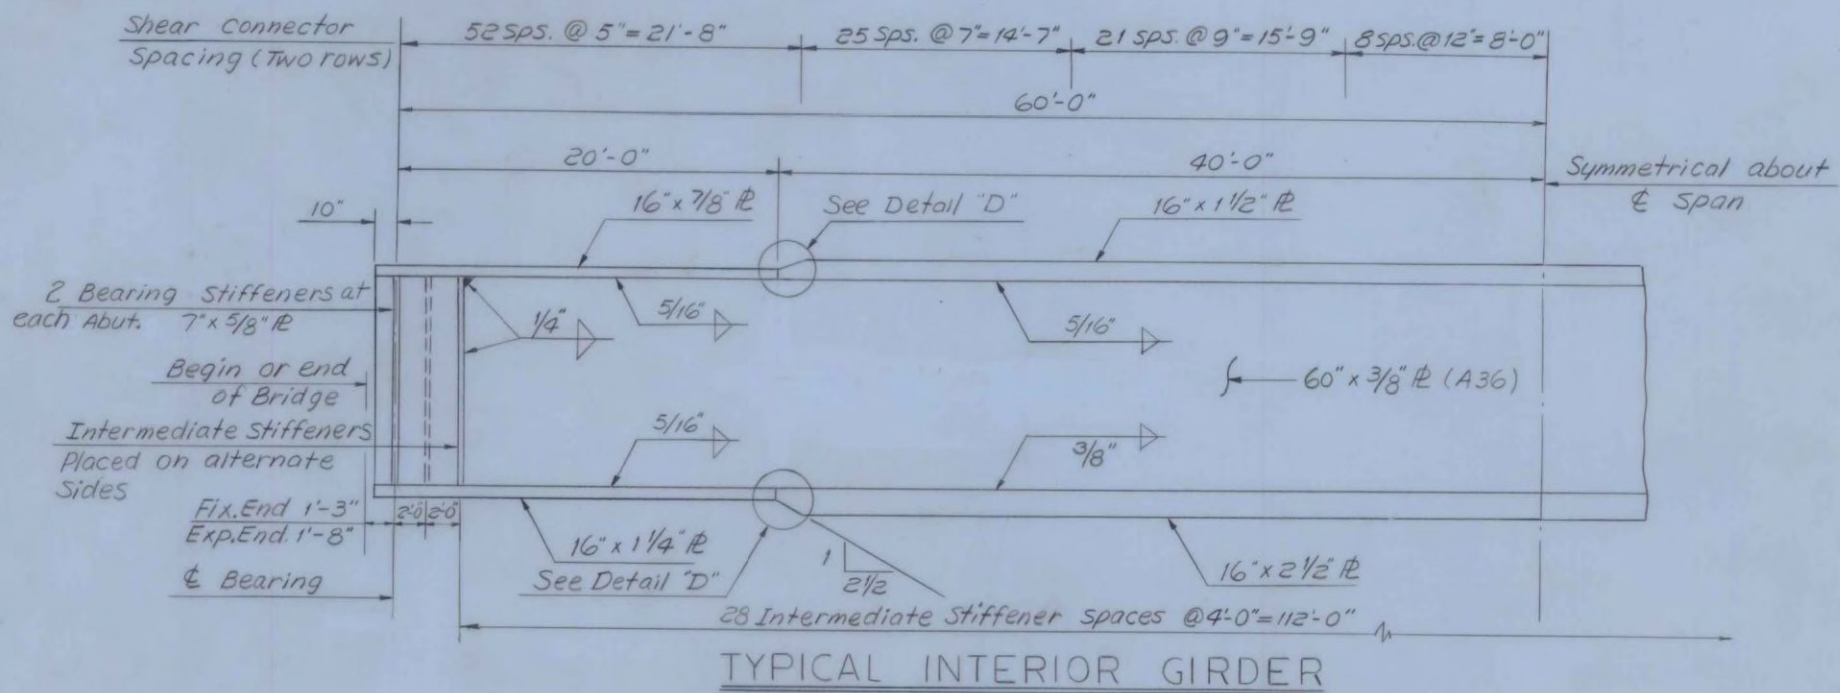 Shear Connector
Spacing (Two rows)
52 Sps. @ 5" = 21'-8"
25 Sps. @ 7" = 14'-7"
21 Sps. @ 9" = 15'-9"
8 Sps. @ 12" = 8'-0"
60'-0"
20'-0"
40'-0"
Symmetrical about
℄ Span
10"
16" x 7/8" ⅊
See Detail "D"
16" x 1 1/2" ⅊
2 Bearing Stiffeners at
each Abut. 7" x 5/8" ⅊
1/4"
5/16"
5/16"
Begin or end
of Bridge
60" x 3/8" ⅊ (A36)
Intermediate Stiffeners
Placed on alternate
Sides
5/16"
3/8"
Fix. End 1'-3"
Exp. End. 1'-8"
2'-0" 2'-0"
16" x 1 1/4" ⅊
See Detail "D"
1
2 1/2
16" x 2 1/2" ⅊
℄ Bearing
28 Intermediate Stiffener Spaces @ 4'-0" = 112'-0"
TYPICAL INTERIOR GIRDER